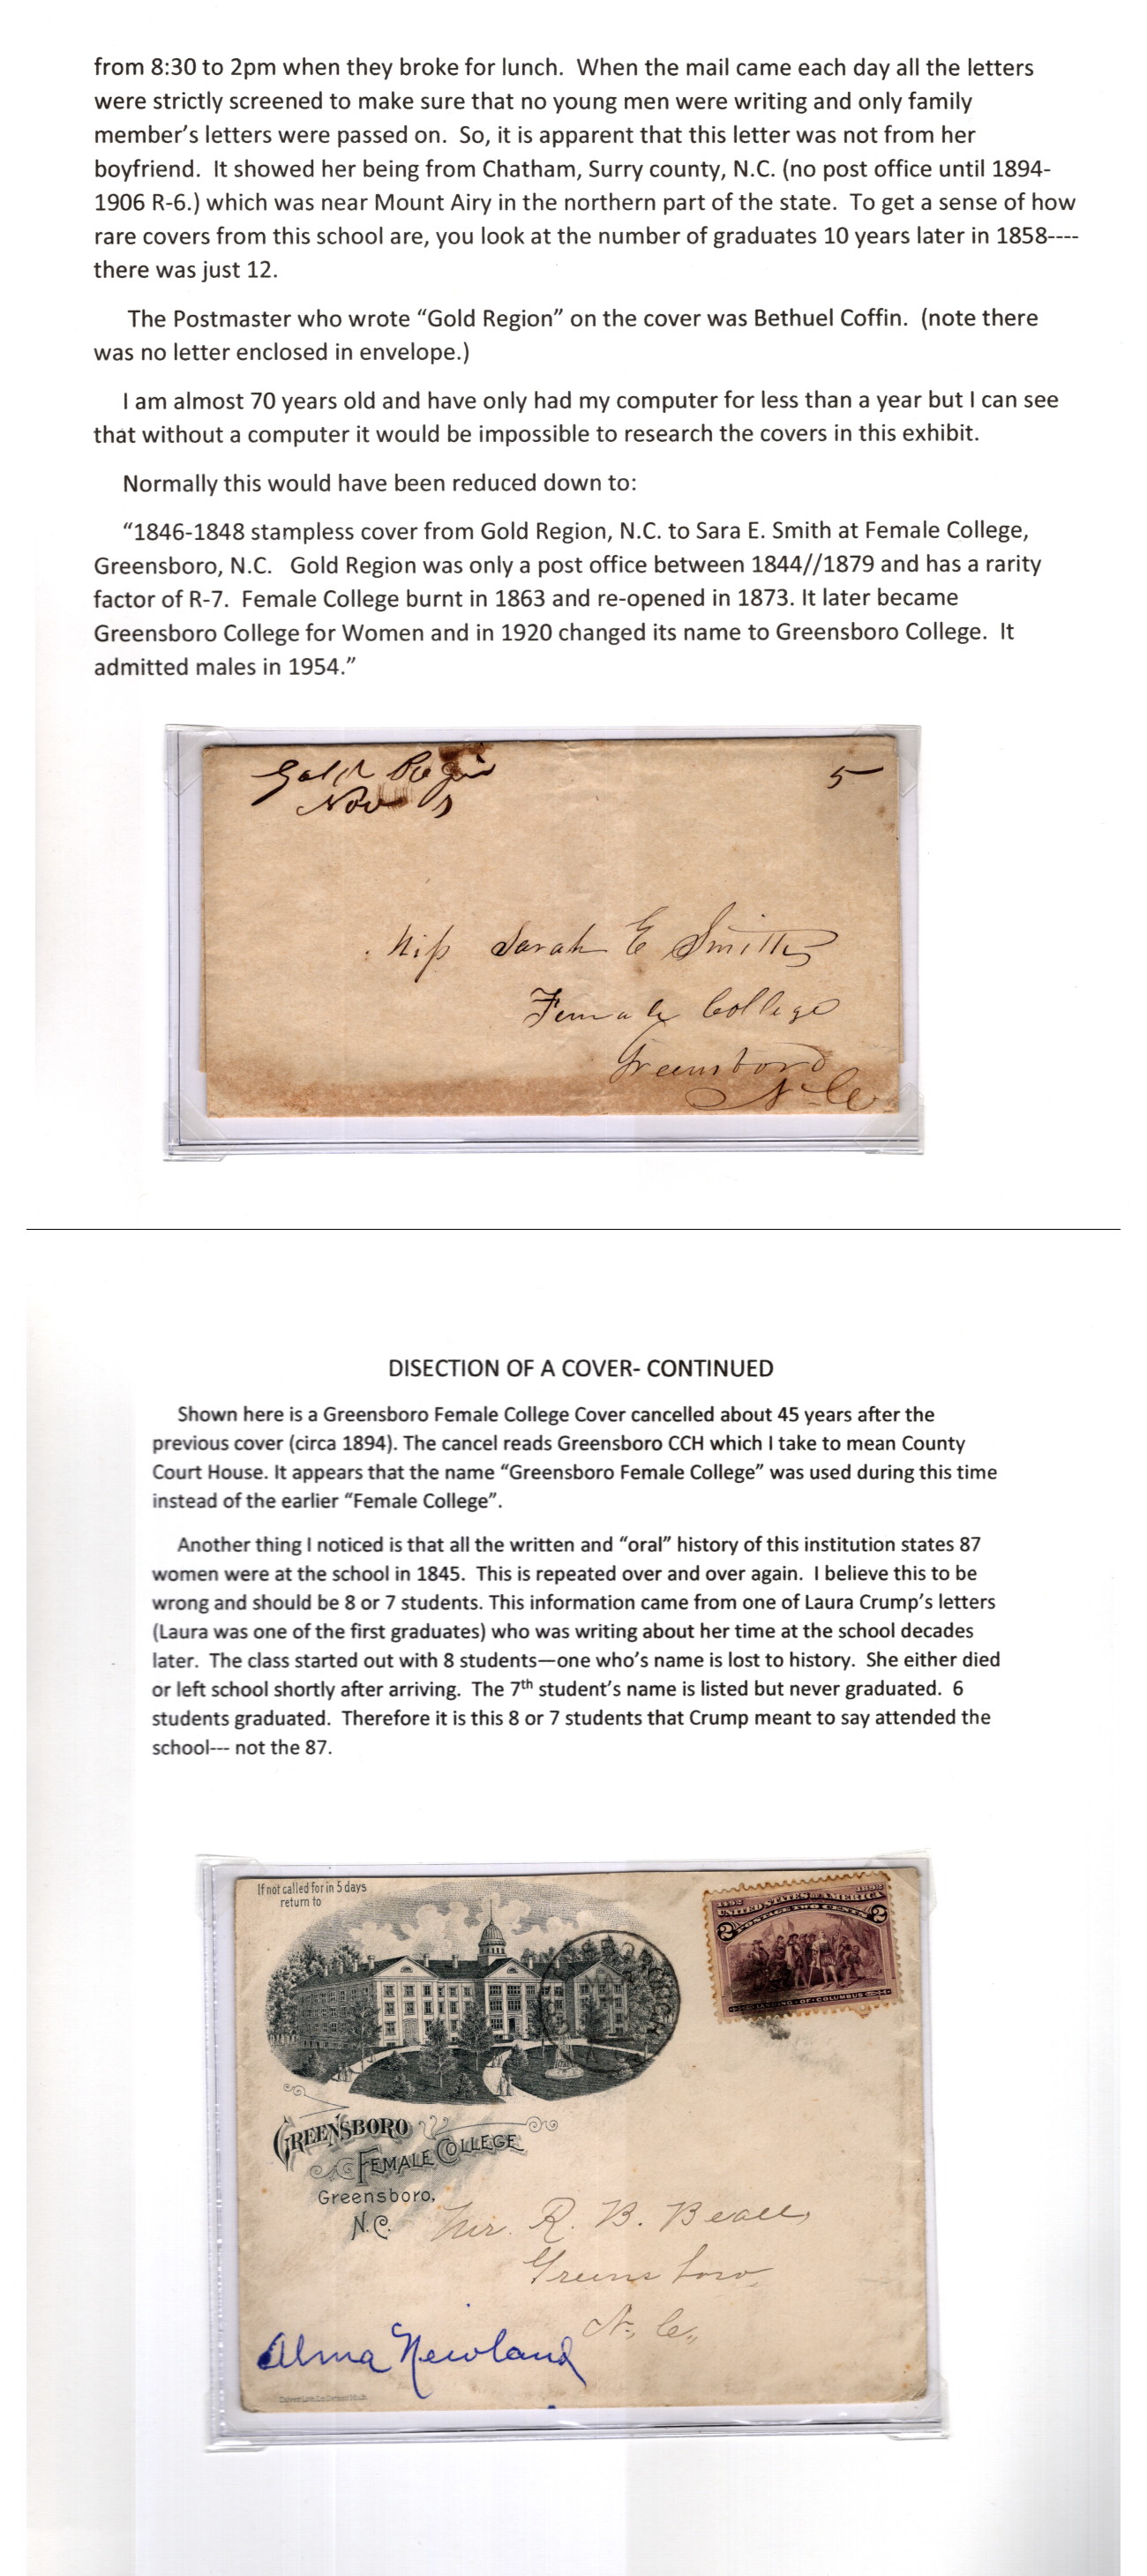 from 8:30 to 2pm when they broke for lunch.  When the mail came each day all the letters
were strictly screened to make sure that no young men were writing and only family
member’s letters were passed on.  So, it is apparent that this letter was not from her
boyfriend.  It showed her being from Chatham, Surry county, N.C. (no post office until 1894-
1906 R-6.) which was near Mount Airy in the northern part of the state.  To get a sense of how
rare covers from this school are, you look at the number of graduates 10 years later in 1858----
there was just 12.
The Postmaster who wrote “Gold Region” on the cover was Bethuel Coffin.  (note there
was no letter enclosed in envelope.)
I am almost 70 years old and have only had my computer for less than a year but I can see
that without a computer it would be impossible to research the covers in this exhibit.
Normally this would have been reduced down to:
“1846-1848 stampless cover from Gold Region, N.C. to Sara E. Smith at Female College,
Greensboro, N.C.   Gold Region was only a post office between 1844//1879 and has a rarity
factor of R-7.  Female College burnt in 1863 and re-opened in 1873. It later became
Greensboro College for Women and in 1920 changed its name to Greensboro College.  It
admitted males in 1954.”
Gold Region 5
Nov
Miss Sarah E Smith
Female College
Greensboro
N. C
DISECTION OF A COVER- CONTINUED
Shown here is a Greensboro Female College Cover cancelled about 45 years after the
previous cover (circa 1894). The cancel reads Greensboro CCH which I take to mean County
Court House. It appears that the name “Greensboro Female College” was used during this time
instead of the earlier “Female College”.
Another thing I noticed is that all the written and “oral” history of this institution states 87
women were at the school in 1845.  This is repeated over and over again.  I believe this to be
wrong and should be 8 or 7 students. This information came from one of Laura Crump’s letters
(Laura was one of the first graduates) who was writing about her time at the school decades
later.  The class started out with 8 students—one who’s name is lost to history.  She either died
or left school shortly after arriving.  The 7th student’s name is listed but never graduated.  6
students graduated.  Therefore it is this 8 or 7 students that Crump meant to say attended the
school--- not the 87.
If not called for in 5 days
return to
1492 1892
UNITED STATES OF AMERICA
2 POSTAGE TWO CENTS 2
LANDING OF COLUMBUS
GREENSBORO
FEMALE COLLEGE
Greensboro,
N.C.
Mr. R. B. Beall,
Greensboro,
N. C.,
Alma Newland